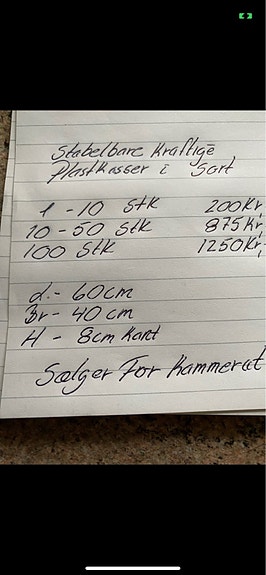 Stabelbare Kraftige
Plastkasser i Sort
1 - 10 Stk 200 Kr,
10 - 50 Stk 875 Kr,
100 Stk 1250 Kr,
d.- 60 cm
Br - 40 cm
H - 8 cm Kant
Sælger For Kammerat